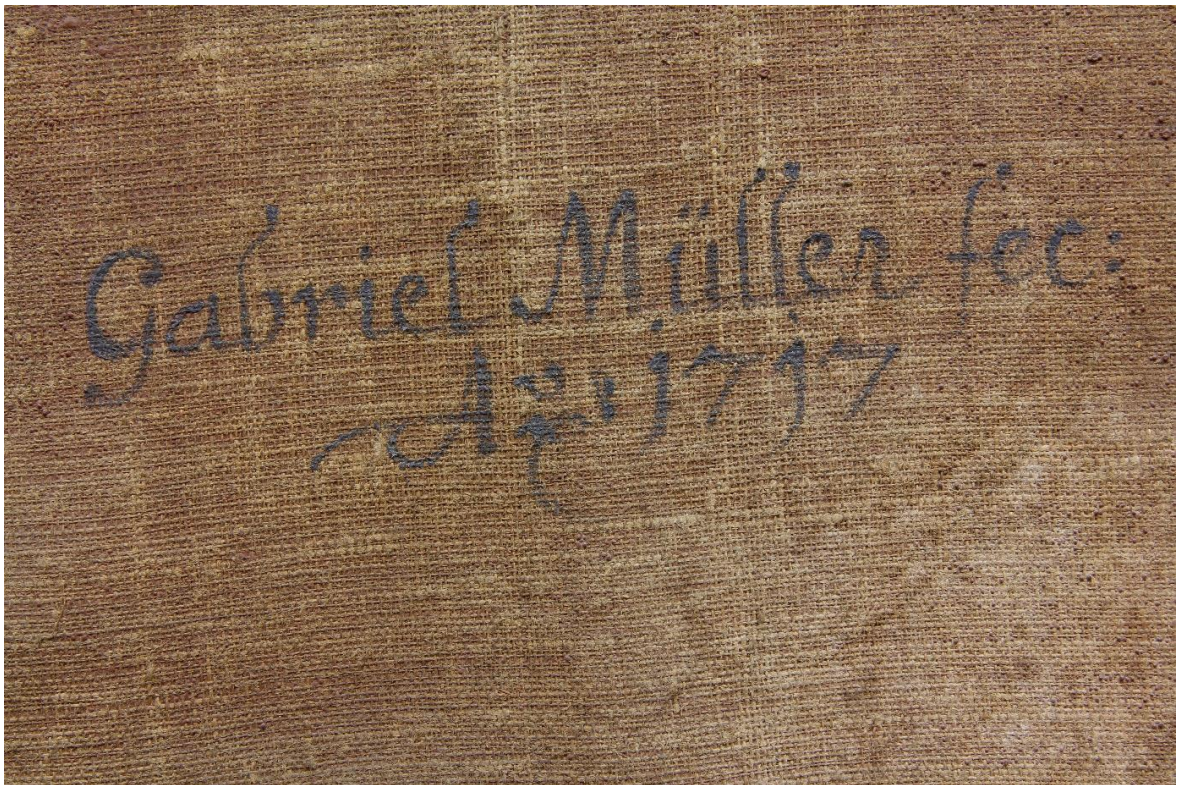 Gabriel Müller fec:
Aº 1717